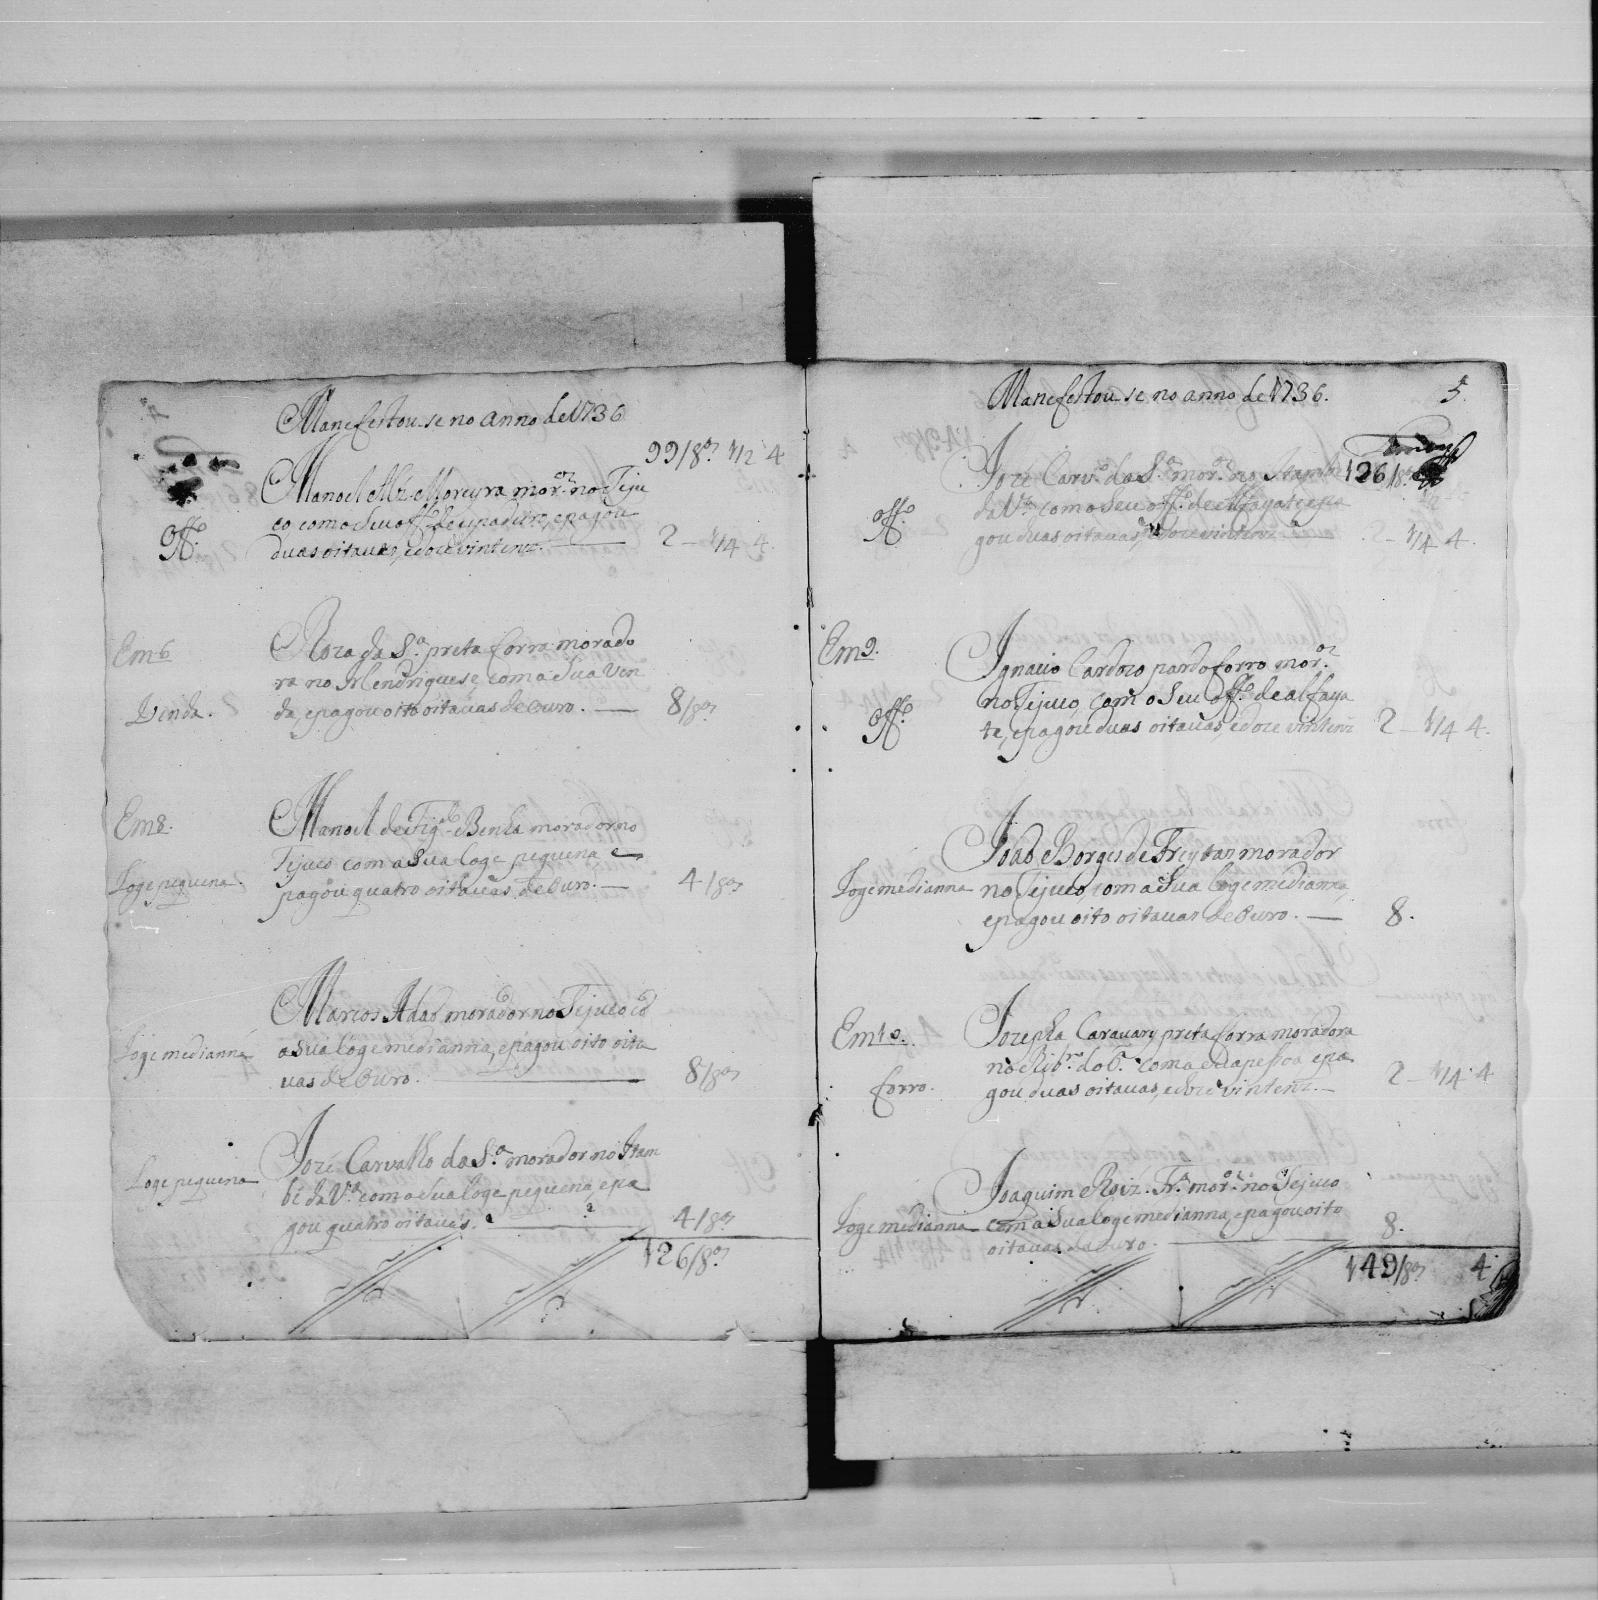 Manefestou-se no anno de 1736
99/8as 1/2 4
Manoel Alz Moreyra mor.or no Teju
co com o Seu off.o de espadeiro, e pagou
Off.o
duas oitavas, e doze vintenz. 2 — 1/4 4
Em 6
Roza da S.a preta forra morado
ra no Mendrigues e, com a Sua Ven
Venda.
da, e pagou oito oitavas de Ouro. 8/8as
Em 8.
Manoel de Fig.do Benha morador no
Tejuco com a Sua loge pequena e
Loge pequena.
pagou quatro oitavas de Ouro. 4/8as
Marcos Adaõ morador no Tejuco cõ
Loge medianna
a Sua loge medianna, e pagou oito oita
vas de Ouro. 8/8as
Jozé Carvalho da S.a morador no Itam
Loge pequena
bé da V.a com a Sua loge pequena, e pa
gou quatro oitavas. 4/8as
126/8as
Manefestou-se no anno de 1736.
5
126/8as
Jozé Carv.o da S.a mor.or no Itambé
Off.o
da V.a com o Seu off.o de alfayate e pa
gou duas oitavas, e doze vintenz 2 — 1/4 4
Em 9.
Ignacio Cardozo pardo forro mor.or
no Tejuco, com o Seu off.o de alfaya
Off.o
te, e pagou duas oitavas, e doze vintenz 2 — 1/4 4.
Joaõ Borges de Freytas morador
Loge medianna
no Tejuco, com a Sua loge medianna,
e pagou oito oitavas de Ouro. 8.
Em 10.
Jozepha Caravary preta forra moradora
no Rib.ro do com a Sua pessoa e pa
Forro.
gou duas oitavas, e doze vintenz. 2 — 1/4 4
Joaquim Roiz. Fr.a mor.or no Tejuco
Loge medianna
com a Sua loge medianna, e pagou oito
oitavas de Ouro. 8.
149/8as 4